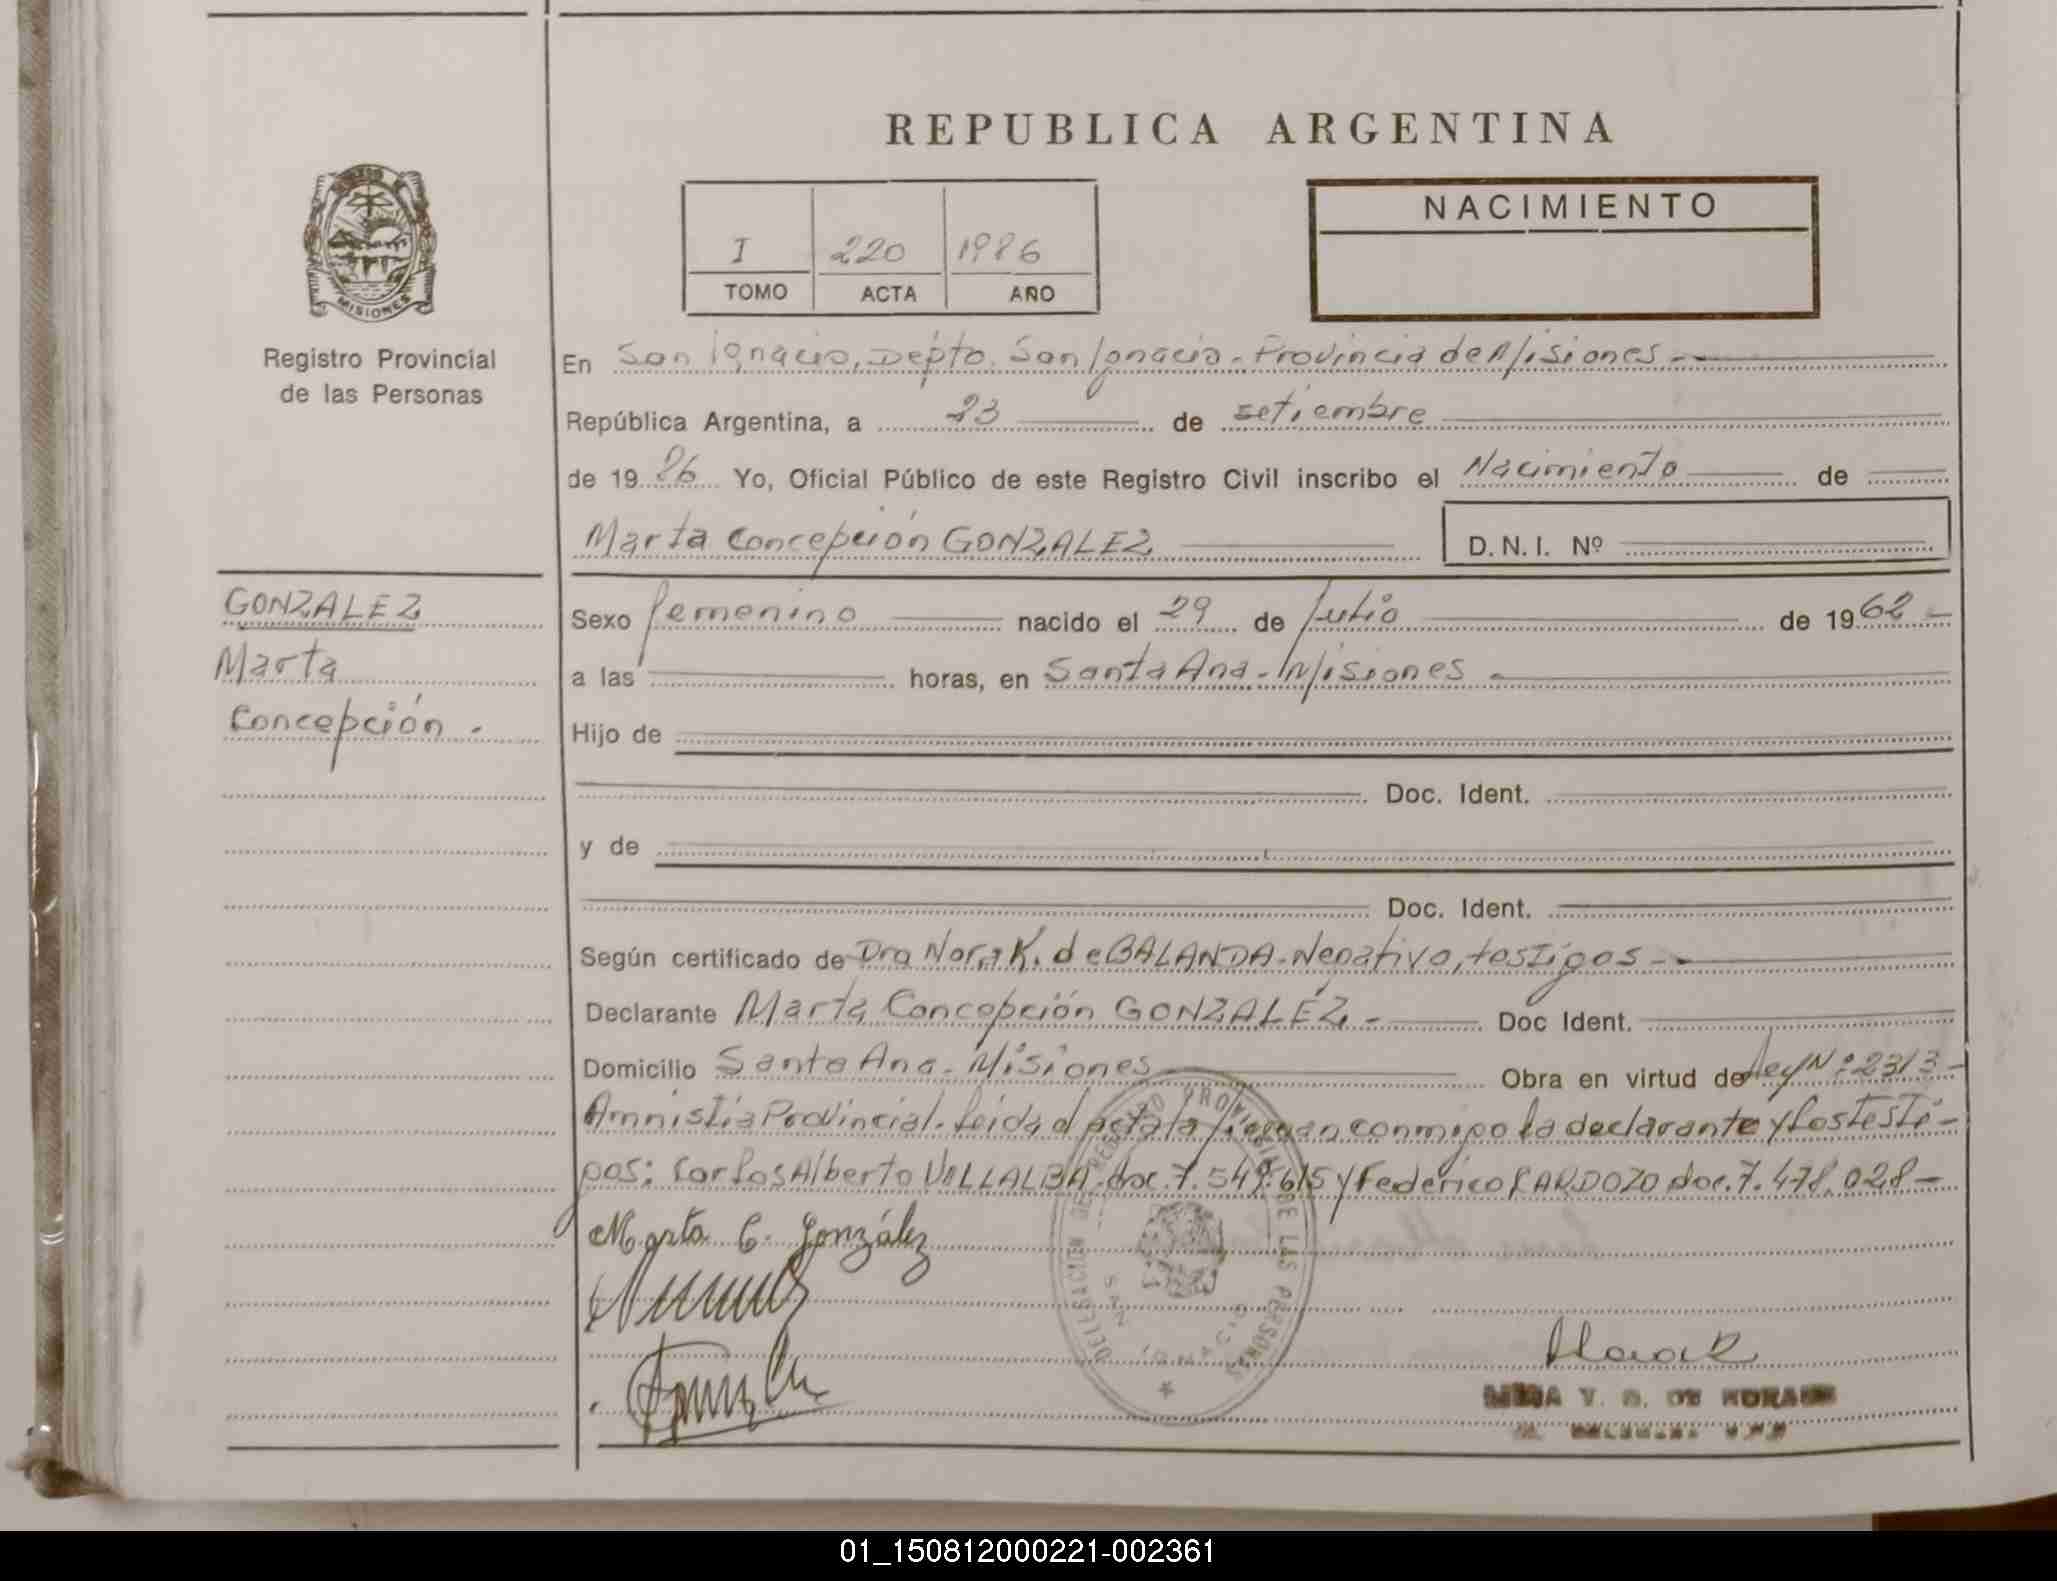 REPUBLICA ARGENTINA
NACIMIENTO
I 220 1986
TOMO ACTA AÑO
MISIONES
Registro Provincial
de las Personas
En San Ignacio, Depto. San Ignacio - Provincia de Misiones -
República Argentina, a 23 de setiembre
de 19 86 Yo, Oficial Público de este Registro Civil inscribo el Nacimiento de
Marta Concepción GONZALEZ D.N.I. Nº
GONZALEZ
Marta
Concepción -
Sexo femenino nacido el 29 de Julio de 19 62 -
a las horas, en Santa Ana - Misiones -
Hijo de
Doc. Ident.
y de
Doc. Ident.
Según certificado de Dra Nora K. de BALANDA - Negativo, testigos -
Declarante Marta Concepción GONZALÉZ - Doc Ident.
Domicilio Santa Ana - Misiones Obra en virtud de Ley Nº: 2313 -
Amnistia Provincial. Leida el acta la firman conmigo la declarante y los testi-
gos: Carlos Alberto VILLALBA doc. 7.549.615 y Federico CARDOZO doc. 7.478.028 -
Marta C. González
DELEGACION DE REGISTRO PROVINCIAL DE LAS PERSONAS
SAN IGNACIO
V. DE MORALES
01_150812000221-002361